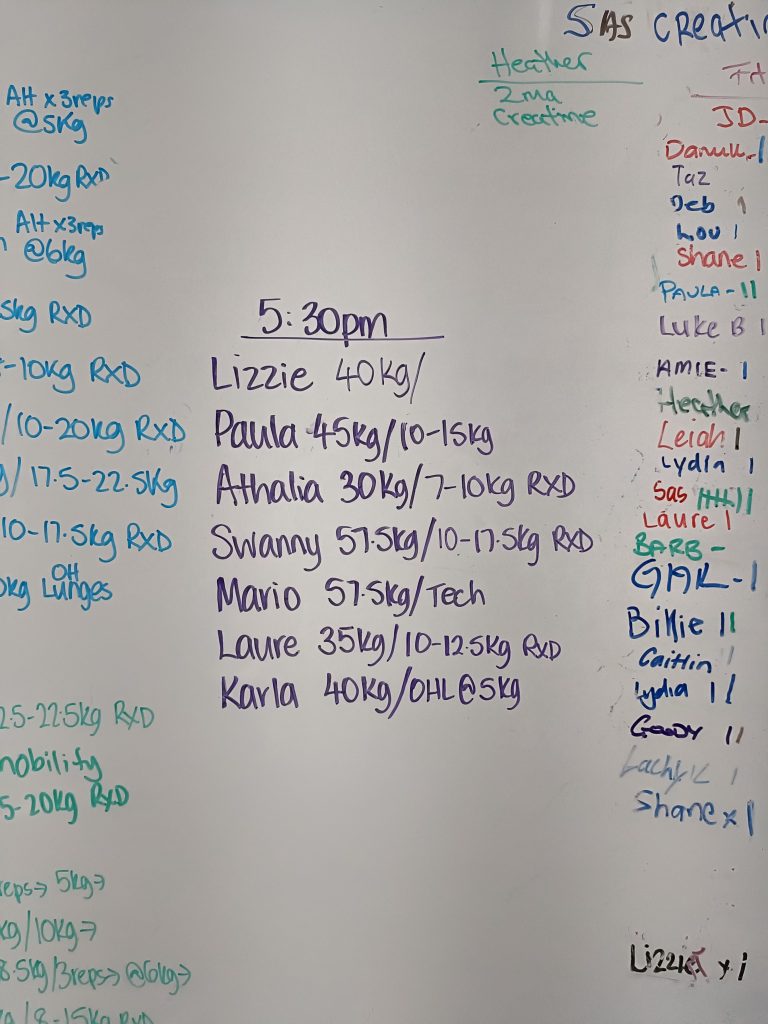 SAS CREATI
Heather
2ma
Creatine
Alt x3reps
@5kg
-20kg RXD
Alt x3reps
@6kg
5kg RXD
-10kg RXD
/10-20kg RXD
/17.5-22.5kg
10-17.5kg RXD
0kg OH Lunges
2.5-22.5kg RXD
mobility
5-20kg RXD
reps→ 5kg→
kg/10kg→
8.5kg/3reps→@6kg→
/8-15kg RXD
5:30pm
Lizzie 40kg/
Paula 45kg/10-15kg
Athalia 30kg/7-10kg RXD
Swanny 57.5kg/10-17.5kg RXD
Mario 57.5kg/Tech
Laure 35kg/10-12.5kg RXD
Karla 40kg/OHL@5kg
JD-
Taz
Deb 1
Lou 1
Shane 1
PAULA-11
Luke B 1
AMIE-1
Heather
Leiah 1
Lydia 1
Sas
Laure 1
BARB-
Billie 11
Caitlin 1
Lydia 1 1
Goody 11
Lachy K 1
Shane x 1
Lizzie x 1